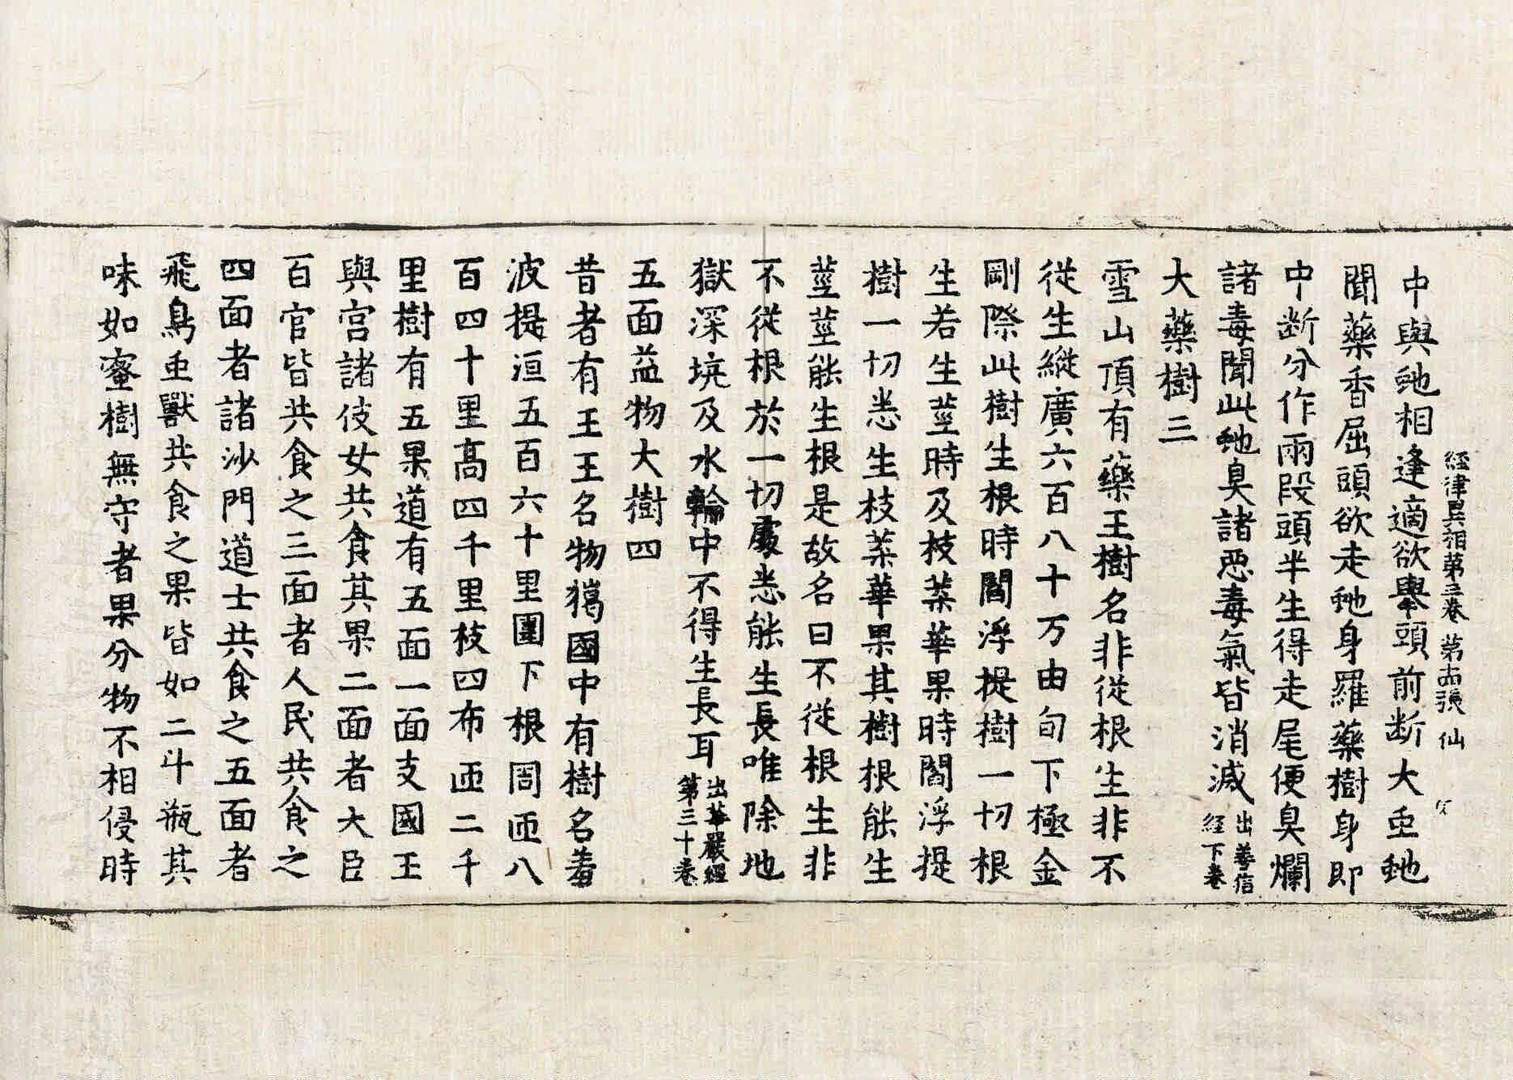 経律異相第三卷 第古張 仙
中與虵相逢適欲舉頭前断大䖝虵
聞藥香屈頭欲走虵身羅藥樹身即
中断分作兩段頭半生得走尾便臭爛
諸毒聞此虵臭諸悪毒氣皆消滅出善信経下卷
大藥樹三
雪山頂有藥王樹名非従根生非不
従生縱廣六百八十万由旬下極金
剛際此樹生根時閻浮提樹一切根
生若生莖時及枝葉華果時閻浮提
樹一切悉生枝葉華果其樹根能生
莖莖能生根是故名曰不従根生非
不従根於一切處悉能生長唯除地
獄深坑及水輪中不得生長耳出華嚴經第三十卷
五面益物大樹四
昔者有王王名物獦國中有樹名羞
波提洹五百六十里圍下根周迊八
百四十里高四千里枝四布迊二千
里樹有五果道有五面一面支國王
與宮諸伎女共食其果二面者大臣
百官皆共食之三面者人民共食之
四面者諸沙門道士共食之五面者
飛鳥䖝獸共食之果皆如二斗瓶其
味如蜜樹無守者果分物不相侵時